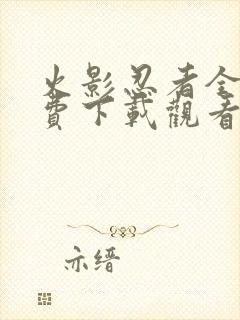 火影忍者全
費下載觀看
亦缙